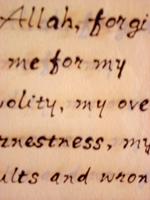 Allah, forgi
me for my
volity, my ove
rnestness, my
ults and wron